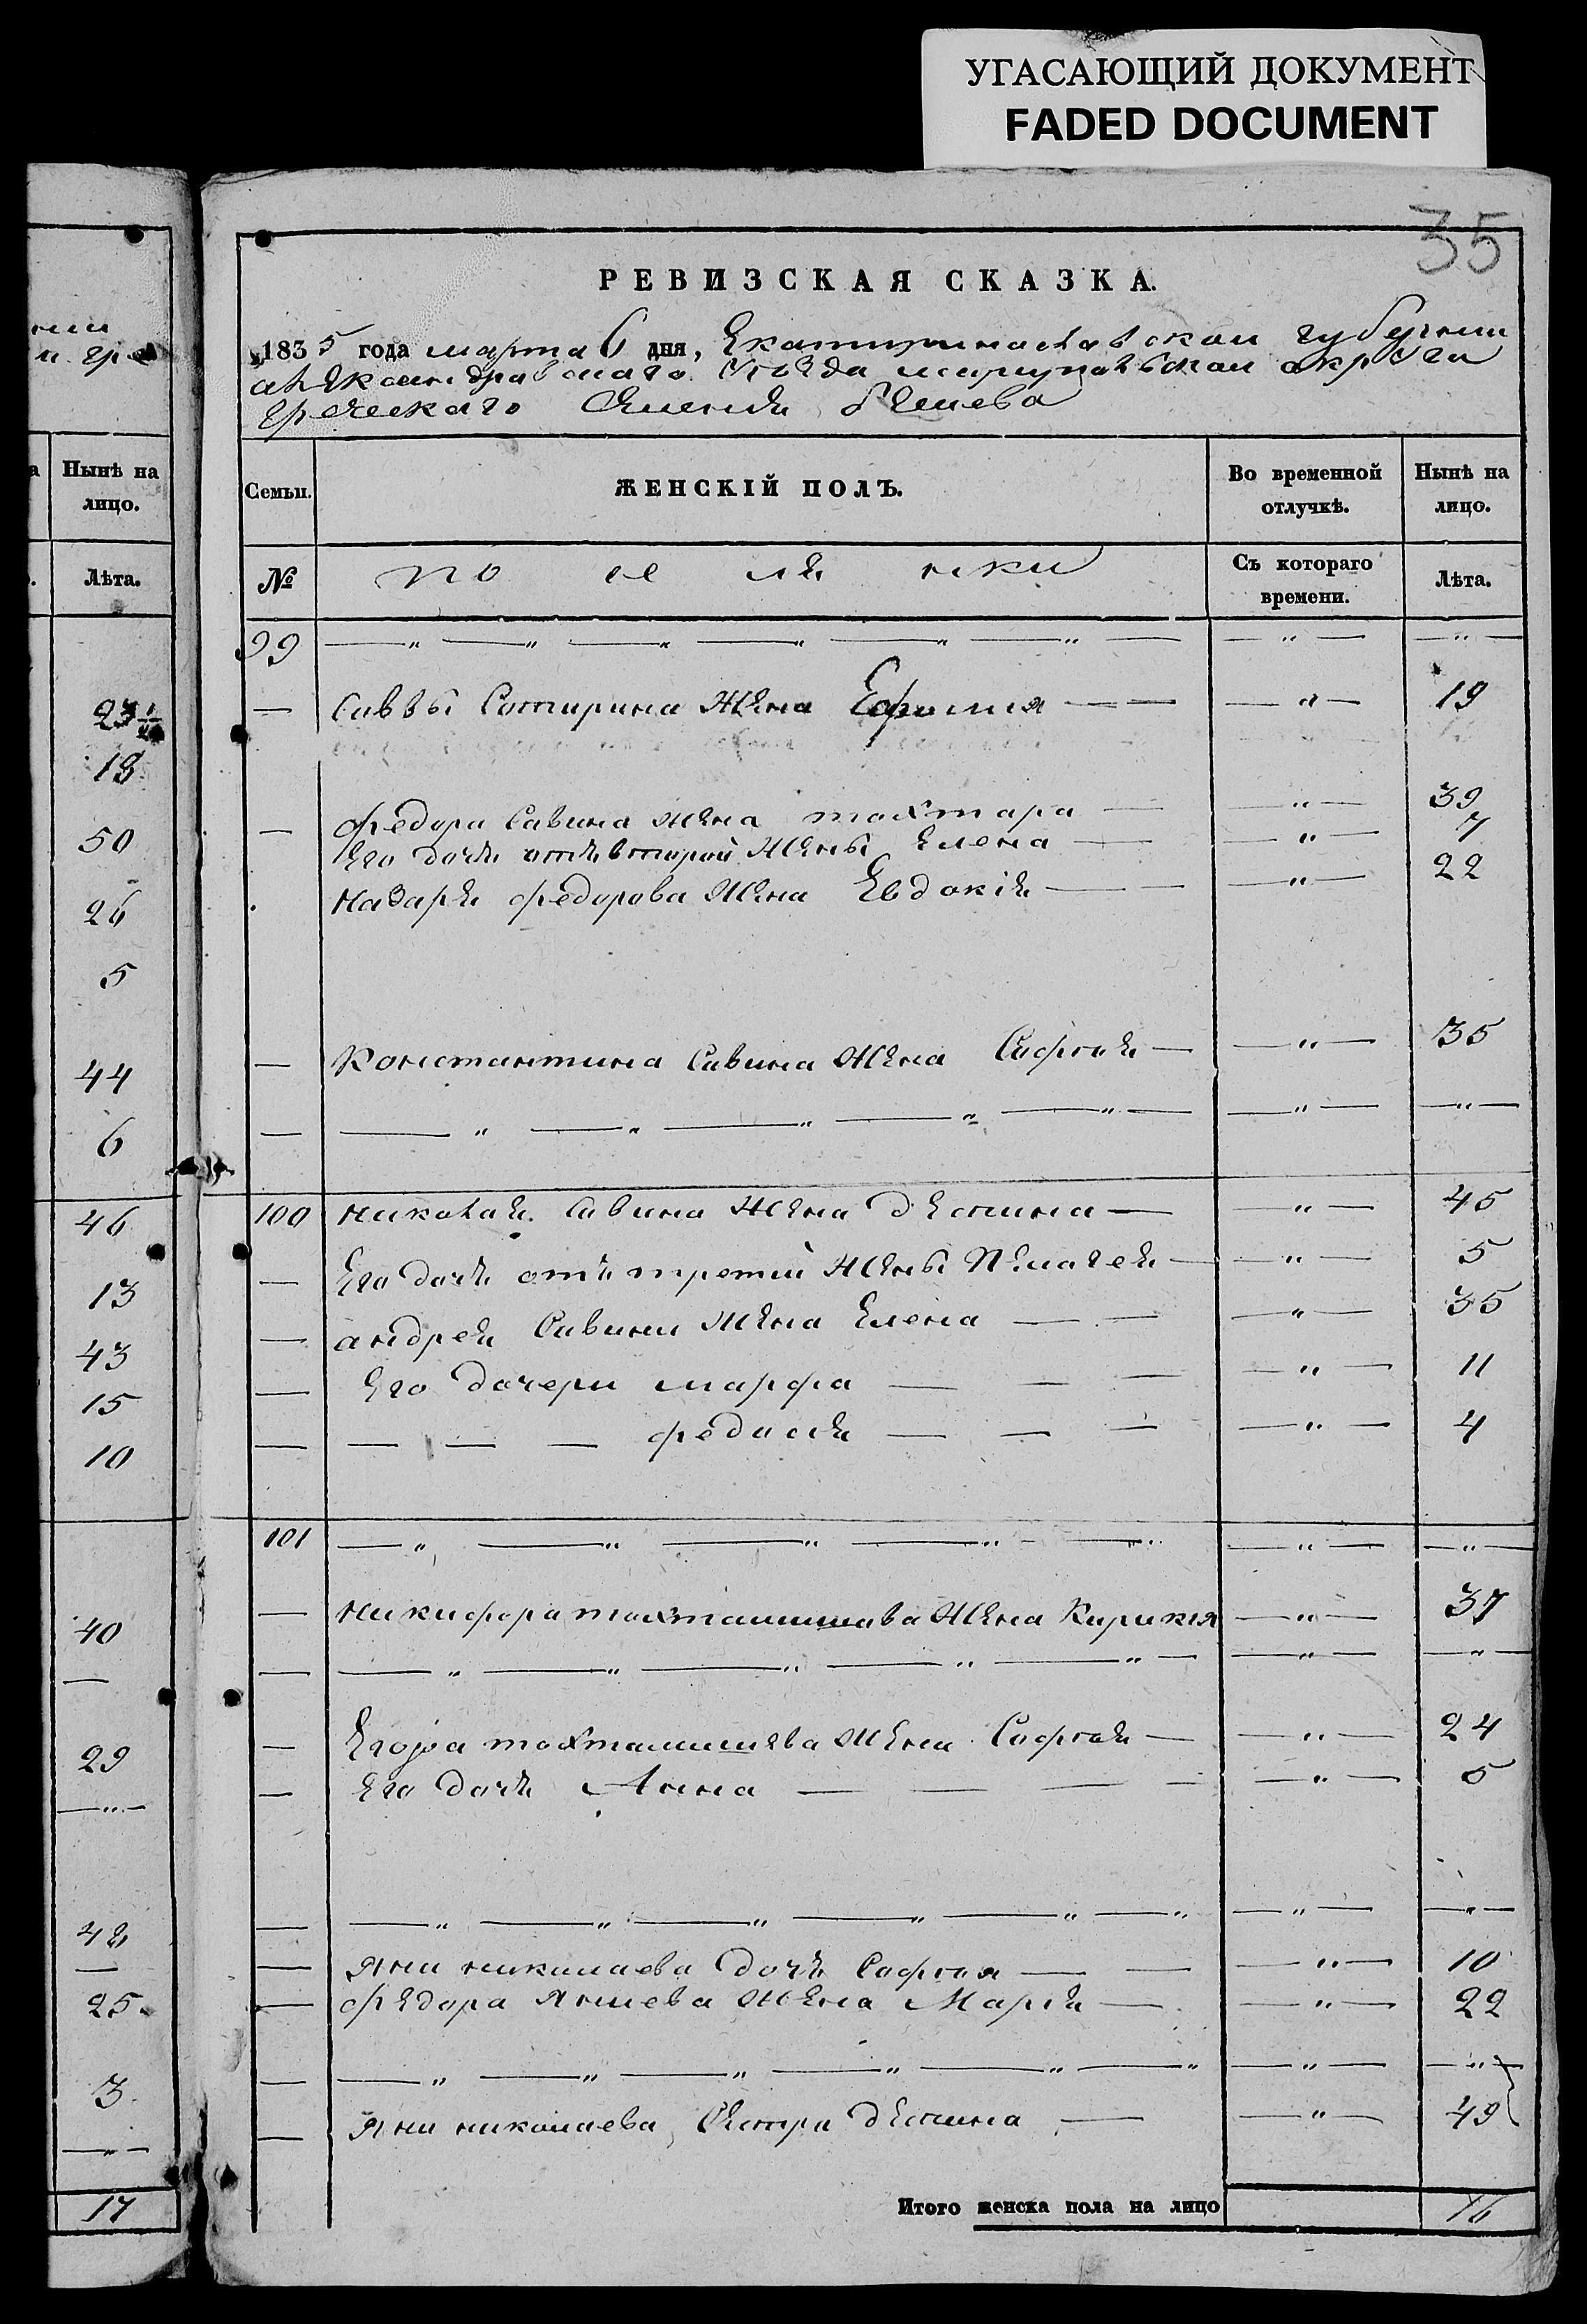 УГАСАЮЩИЙ ДОКУМЕНТ
FADED DOCUMENT
35
РЕВИЗСКАЯ СКАЗКА.
1835 года марта 6 дня, Екатеринославской губернии
александровского уезда мариупольской округи
греческого селения бешева
Нынѣ на лицо.
Лѣта.
23
18
50
26
5
44
6
46
13
43
15
10
40
—
29
— " —
42
—
25
3
— " —
17
Семьи. ЖЕНСКІЙ ПОЛЪ. Во временной отлучкѣ. Нынѣ на лицо.
№ поселянки Съ котораго времени. Лѣта.
99 — " — " — " — " — " — " — — " — — " —
— Саввы Сотирина жена Ефимия — — — " — 19
— федора Савина жена тохтара — — " — 39
Его дочь отъ второй жены Елена — — " — 7
назаря федорова жена Евдокія — — — " — 22
— Константина Савина жена София — — " — 35
— — " — " — " — " — " — — " — — " —
100 николая Савина жена деспина — — " — 45
— Его дочь отъ третий жены Пелагея — — " — 5
— андрея Савина жена Елена — — — " — 35
— Его дочери марфа — — — — " — 11
— — — — федосия — — — — " — 4
101 — " — " — " — " — " — " — — " —
— никифора тохтамишова жена Кирикия — " — 37
— — " — " — " — " — " — — " — — " —
— Егора тохтамишева жена София — — " — 24
— Его дочь Анна — — — — — " — 5
— — " — " — " — " — " — " — " — — " —
— яни николаева дочь София — — — " — 10
— федора яниева жена Мария — — " — 22
— — " — " — " — " — " — " — — " —
— яни николаева сестра деспина — — " — 49
Итого женска пола на лицо 16